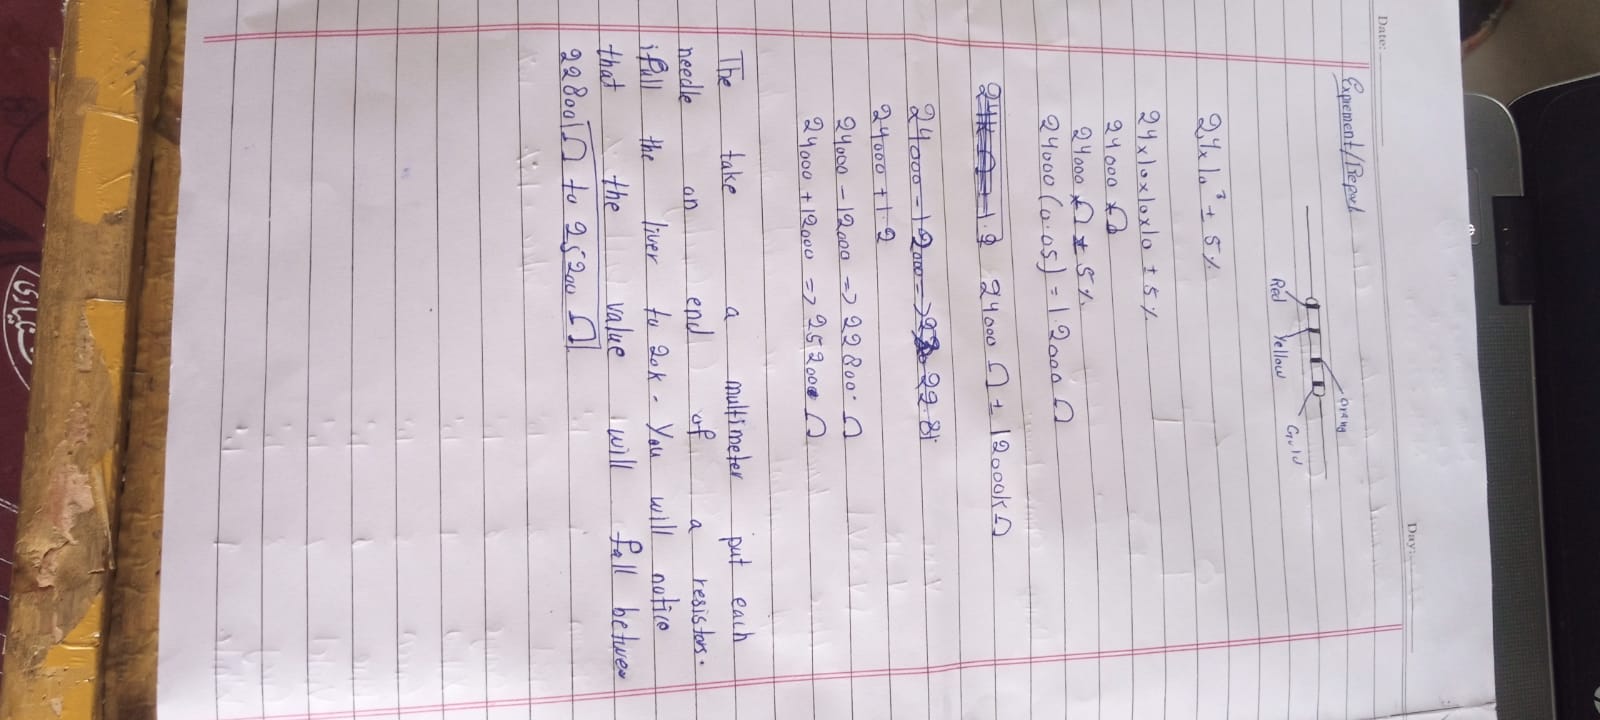 Date:
Day:
Exprement/Report
Orang
Gold
Red
Yellow
24x10³ ± 5%
24x10x10x10 ± 5%
24000 Ω
24000 Ω ± 5%
24000 (0.05) = 12000 Ω
24000 Ω ± 12000kΩ
24000 + 1.2
24000 - 12000 => 22800. Ω
24000 + 12000 => 25200 Ω
The take a multimeter put each
needle on end of a resistors.
ifull the liver to 20k. You will notice
that the value will fall between
22800Ω to 25200 Ω